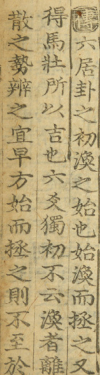 六居卦之初渙之始也始渙而拯之又
得馬壯所以吉也六爻獨初不云渙者離
散之勢辨之宜早方始而拯之則不至於